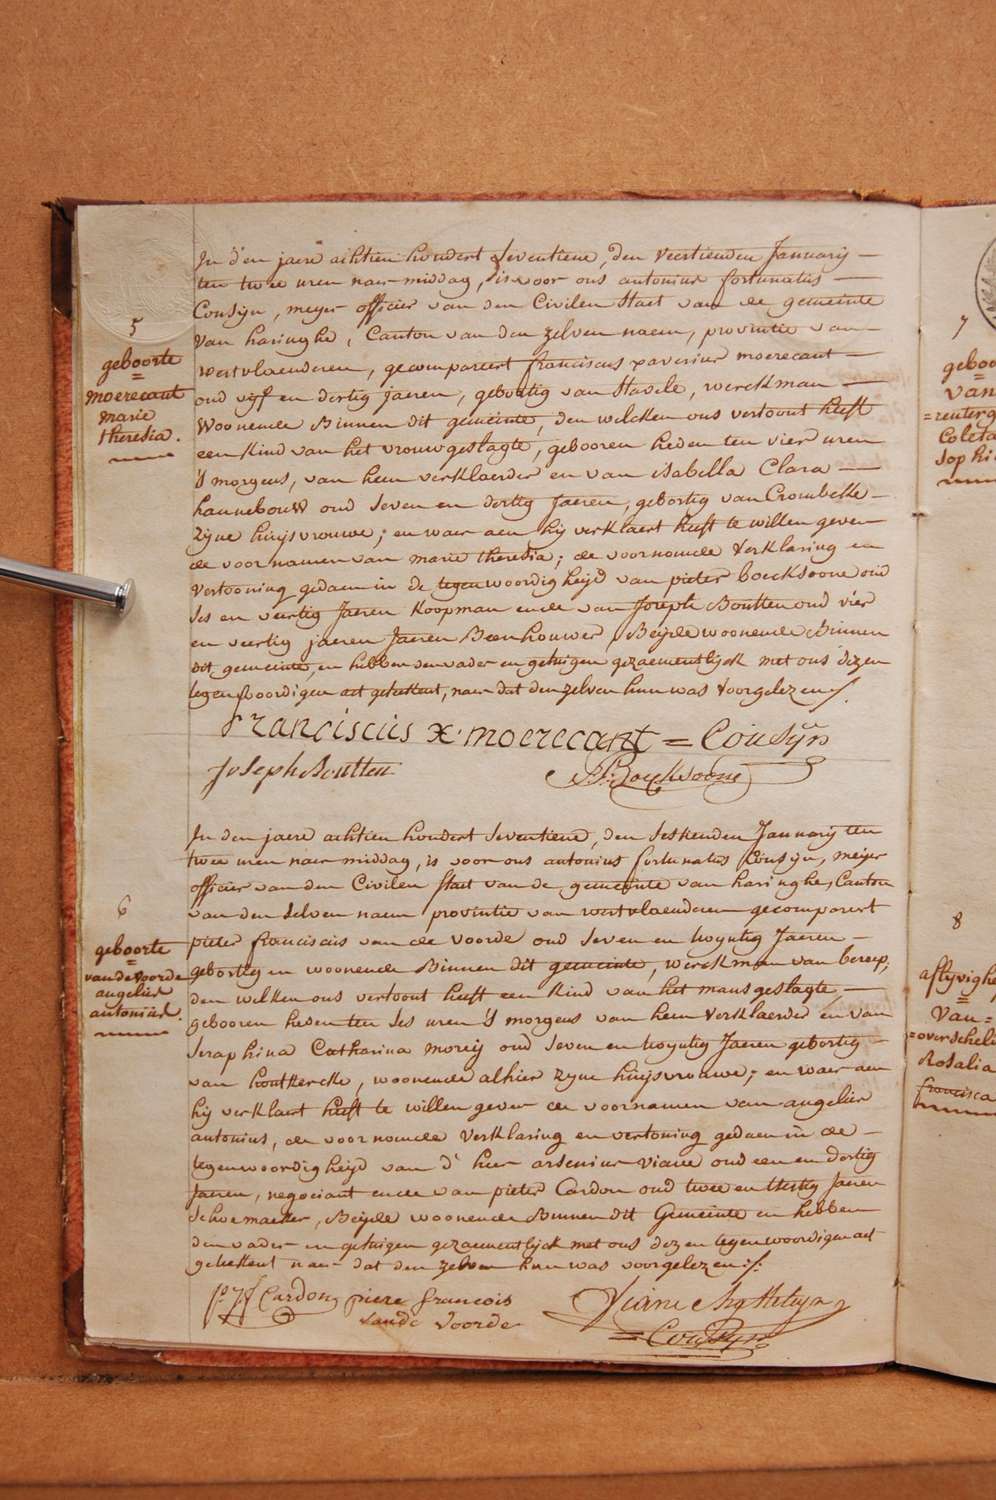 5
geboorte
=
moerecant
marie
theresia.
In d'en jaere achtien hondert Seventiene, den Veertienden January
ten twee uren naer middag, is voor ons antonius fortunatus
Cousyn, meyer officier van den Civilen Staet van de gemeente
Van haringhe, Canton van den zelven naem, provintie van
westvlaenderen, gecompareert franciscus xaverius moerecant
oud vyf en dertig jaeren, gebortig van Stavele, werckman
Woonende Binnen dit gemeinte, den welcken ons vertoont heeft
een kind van het vrouwgeslagte, gebooren heden ten vier uren
's morgens, van hem verklaerder en van isabella Clara
hannebouw oud Seven en dertig Jaeren, gebortig van Crombeke
zyne huysvrouwe; en waer aen hy verklaert heeft te willen geven
de voornamen van marie theresia; de voornomde Verklaring en
Vertooning gedaen in de tegenwoordigheyd van pieter boecksoone oud
Ses en veertig Jaeren Koopman ende van Joseph Boutten oud vier
en veertig jaeren Jaeren Beenhouwer, Beyde woonende Binnen
dit gemeinte, en hebben den vader en getuigen gezaementlyck met ons dezen
tegenwoordigen act geteekent, naer dat den zelven hun was Voorgelezen /.
Franciscus X. moerecant = Cousyn
Joseph Boutten P: Boecksoone
6
geboorte
=
van de Voorde
angelier
antonius.
In den jaere achtien hondert Seventiene, den Sestienden January ten
twee uren naer middag, is voor ons antonius fortunatus Cousyn, meyer
officier van den Civilen Staet van de gemeinte van haringhe, Canton
van den Selven naem provintie van westvlaenderen gecompareert
pieter franciscus van de Voorde oud Seven en twyntig Jaeren
gebortig en woonende Binnen dit gemeinte, werckman van beroep,
den welken ons vertoont heeft een Kind van het mansgeslagte
gebooren heden ten Ses uren 's morgens van hem Verklaerder en van
Seraphina Catharina morey oud Seven en twyntig Jaeren gebortig
van houtkercke, woonende alhier zyne huysvrouwe; en waer aen
hy verklaert heeft te willen geven de voornamen van angelier
antonius, de voornomde Verklaring en vertoning gedaen in de
tegenwoordigheyd van d'heer arsenius Viane oud een en dortig
Jaeren, negociant ende van pieter Cardon oud twee en Jaeren
Schoemaeker, Beyde woonende Binnen dit Gemeinte en hebben
den vader en getuigen gezaementlyck met ons dezen tegenwoordigen act
geteekent naer dat den zelven hun was voorgelezen /:
Cardon piere francois Viane
vande Voorde = Cousyn
7
geboo
=
van
=renterg
Coleta
Sophi
8
aflyvighe
=
Van=
=overschel
Rosalia
francisca